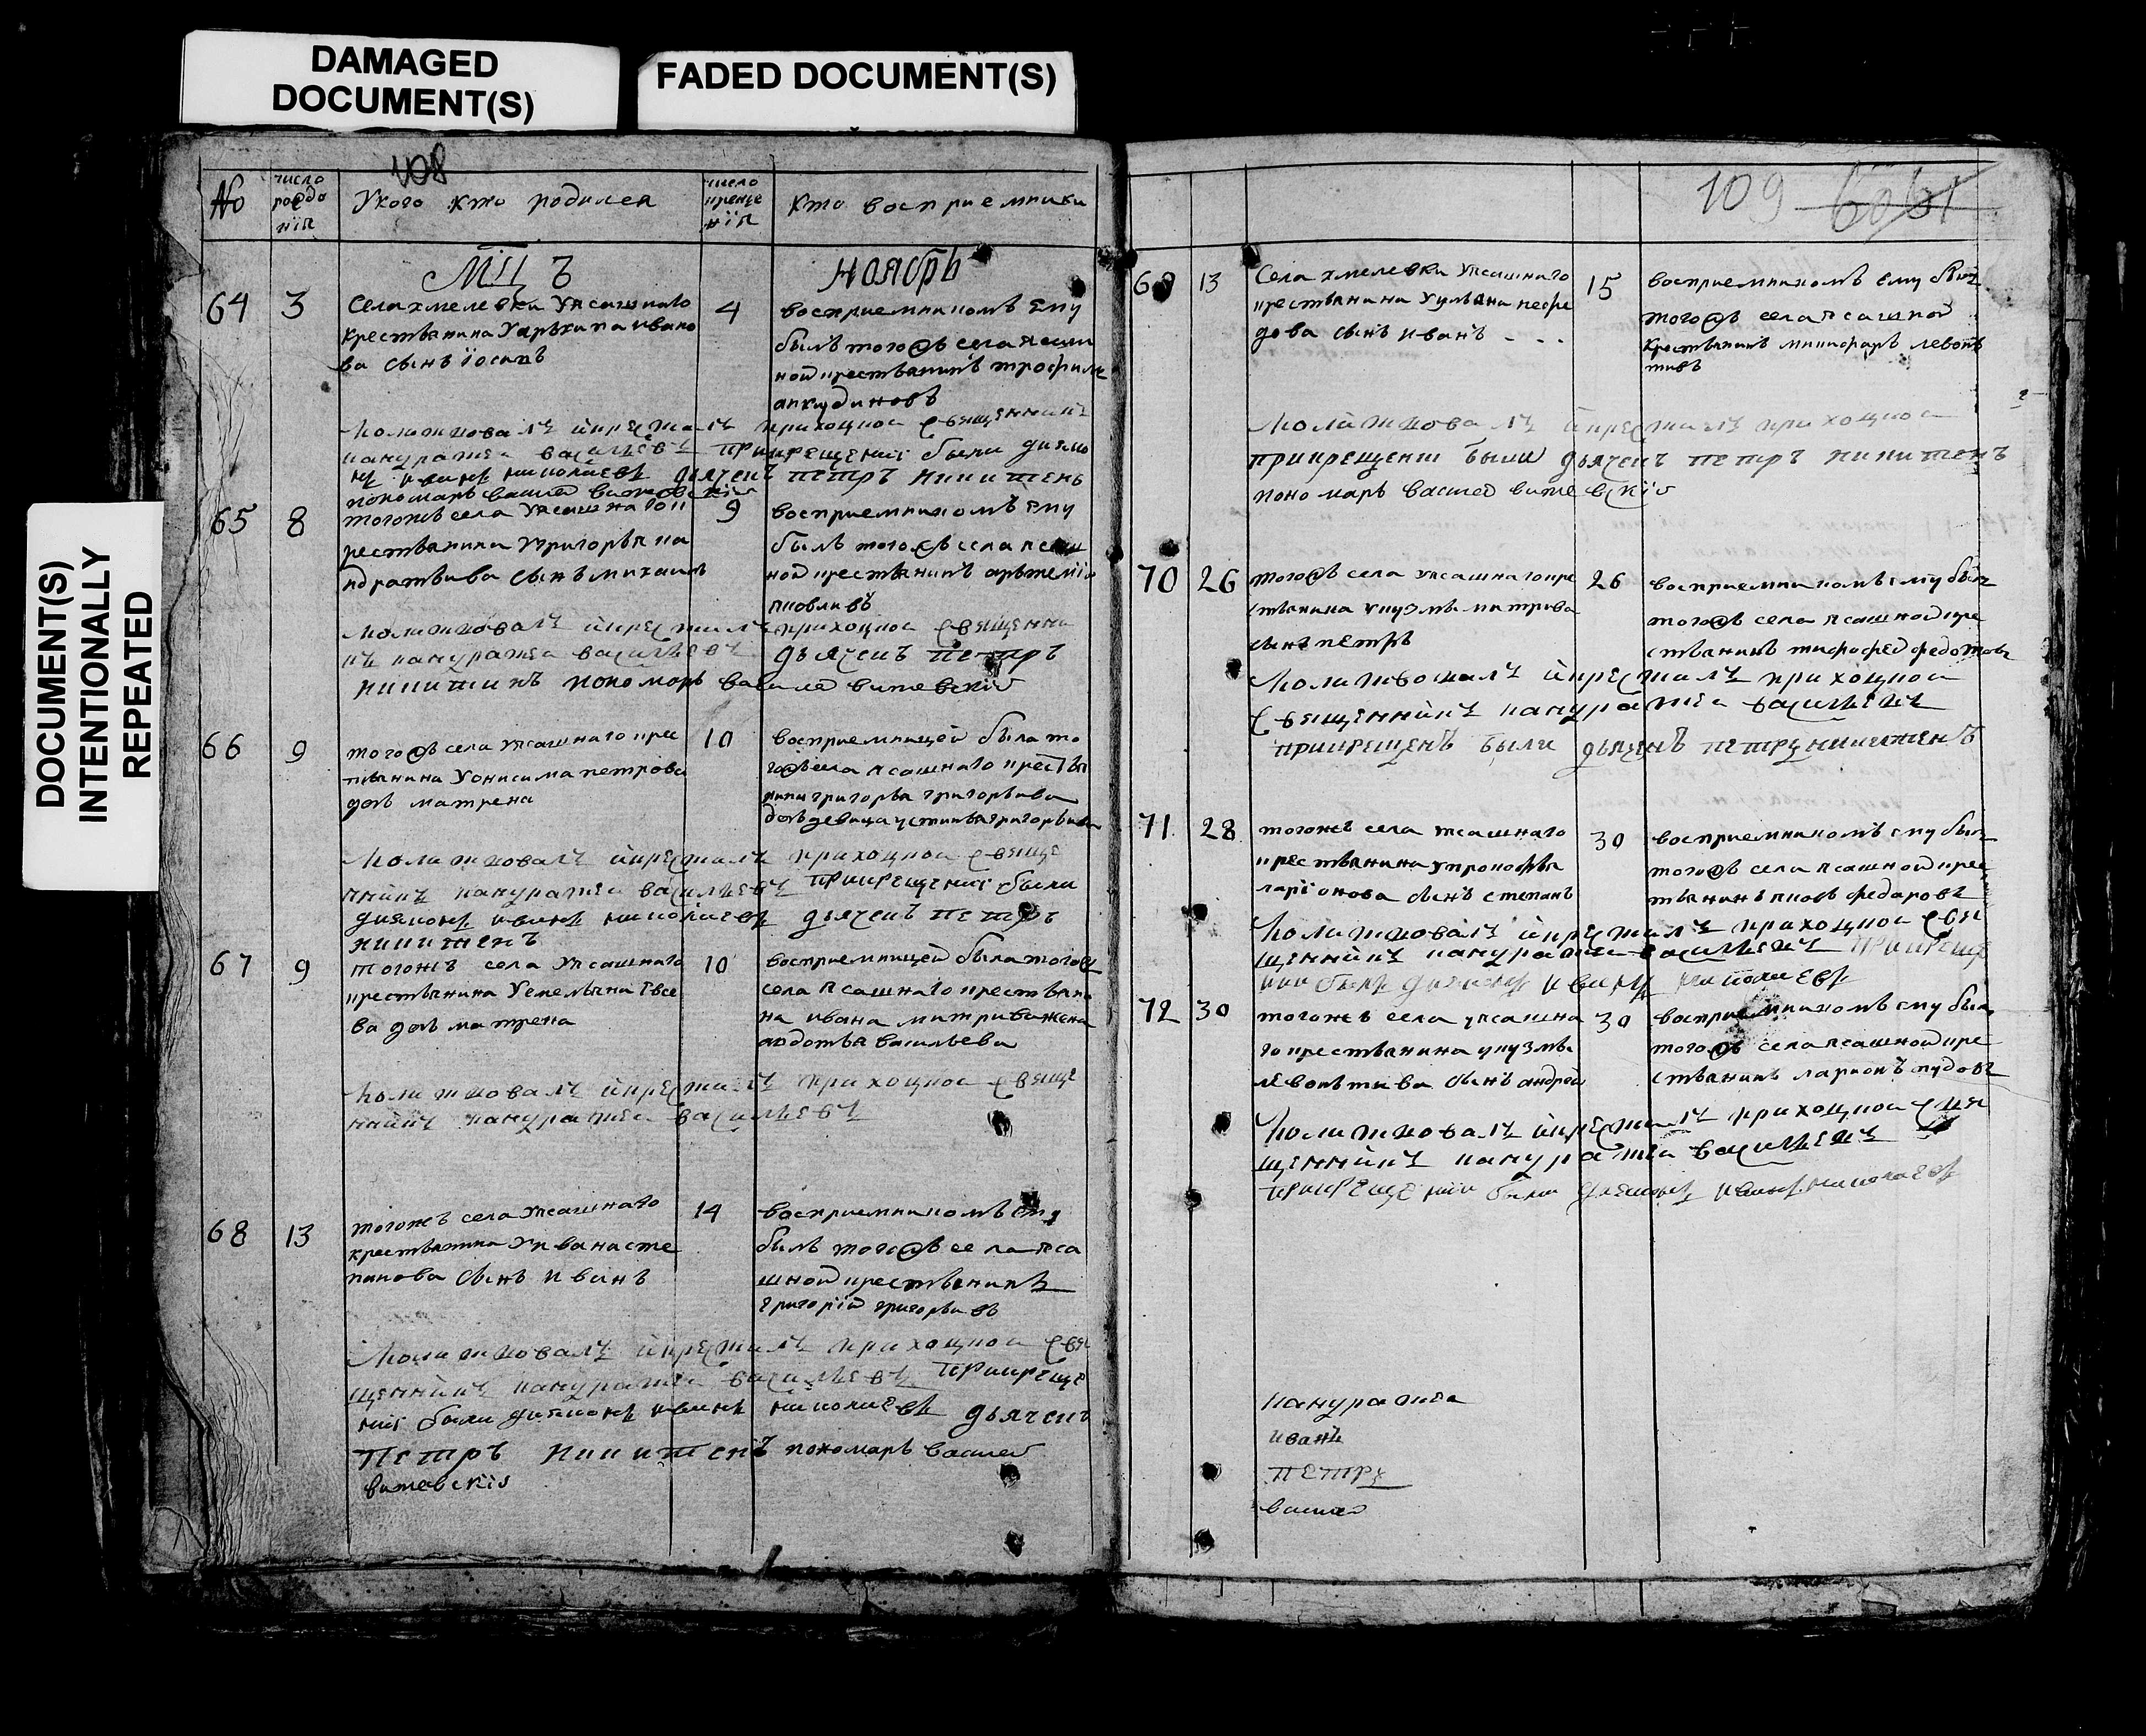 DAMAGED
DOCUMENT(S)
FADED DOCUMENT(S)
DOCUMENT(S)
INTENTIONALLY
REPEATED
108
№
число рожде нїя
Укого кто родился
число креще нїя
кто восприемники
Мцъ Ноябрь
64 3
села хмелевки уясашнаго
крестьянина уархипа ивано
ва сынъ їосипъ
4
восприемникомъ ему
былъ тогожъ села ясаш
ной крестьянинъ трофимъ
анкудиновъ
молитвовалъ икрестилъ приходцкой священникъ
кандратей васильевъ прикрещениї были дияко
нъ иванъ николаевъ дьячекъ петръ никитенъ
пономарь василей витевскїй
65 8
тогожъ села уясашнагок
рестьянина григорья ка
ндратьива сынъ михаилъ
9
восприемникомъ ему
былъ тогожъ села ясаш
ной крестьянинъ арьтемїй
яковливъ
молитвовалъ икрестилъ приходцкой священни
къ кандратей васильевъ дьячекъ петръ
никитинъ пономарь василей витевскїй
66 9
тогожъ села уясашнаго крес
тьянина уонисима петрова
дочь матрена
10
восприемницей была то
гожъ села ясашнаго крестья
нина григорья григорьива
дочь девица устинья григорьива
молитвовалъ икрестилъ приходцкой свяще
нникъ кандратей васильевъ прикрещениї были
дияконъ иванъ николаевъ дьячекъ петръ
никитенъ
67 9
тогожъ села уясашнаго
крестьянина уемельяна евсе
ва дочь матрена
10
восприемницей была тогожъ
села ясашнаго крестьяни
на ивана митрива жена
авдотья васильева
молитвовалъ икрестилъ приходцкой свяще
нникъ кандратей васильевъ
68 13
тогожъ села уясашнаго
крестьянина уивана сте
панова сынъ иванъ
14
восприемникомъ ему
былъ тогожъ села яса
шной крестьянинъ
григорїй григорьивъ
молитвовалъ икрестилъ приходцкой свя
щенникъ кандратей васильевъ прикреще
ниї были дияконъ иванъ николаевъ дьячекъ
петръ никитенъ пономарь василей
витевскїй
109
69 13
села хмелевки уясашнаго
крестьянина уульяна нефе
дова сынъ иванъ - - -
15
восприемникомъ ему былъ
тогожъ села ясашной
крестьянинъ никифаръ левонъ
тивъ
молитвовалъ икрестилъ приходцкой
прикрещениї были дьячекъ петръ никитенъ
пономарь василей витевскїй
70 26
тогожъ села уясашнагокре
стьянина укузмы митрива
сынъ петръ
26
восприемникомъ ему былъ
тогожъ села ясашной кре
стьянинъ тимофей федотовъ
молитвовалъ икрестилъ приходцкой
священникъ кандратей васильевъ
прикрещенъ были дьячекъ петръ никитенъ
71 28
тогожъ села уясашнаго
крестьянина упрокофья
ларїонова сынъ степанъ
30
восприемникомъ ему былъ
тогожъ села ясашной крес
тьянинъ яковъ федаровъ
молитвовалъ икрестилъ приходцкой свя
щенникъ кандратей васильевъ прикреще
нии были дияконъ иванъ николаевъ
72 30
тогожъ села уясашна
го крестьянина укузмы
левонътива сынъ андрей
30
восприемникомъ ему былъ
тогожъ села ясашной кре
стьянинъ ларионъ иудовъ
молитвовалъ икрестилъ приходцкой свя
щенникъ кандратей васильевъ
прикрещении были дияконъ иванъ николаевъ
кандратей
иванъ
петръ
василей